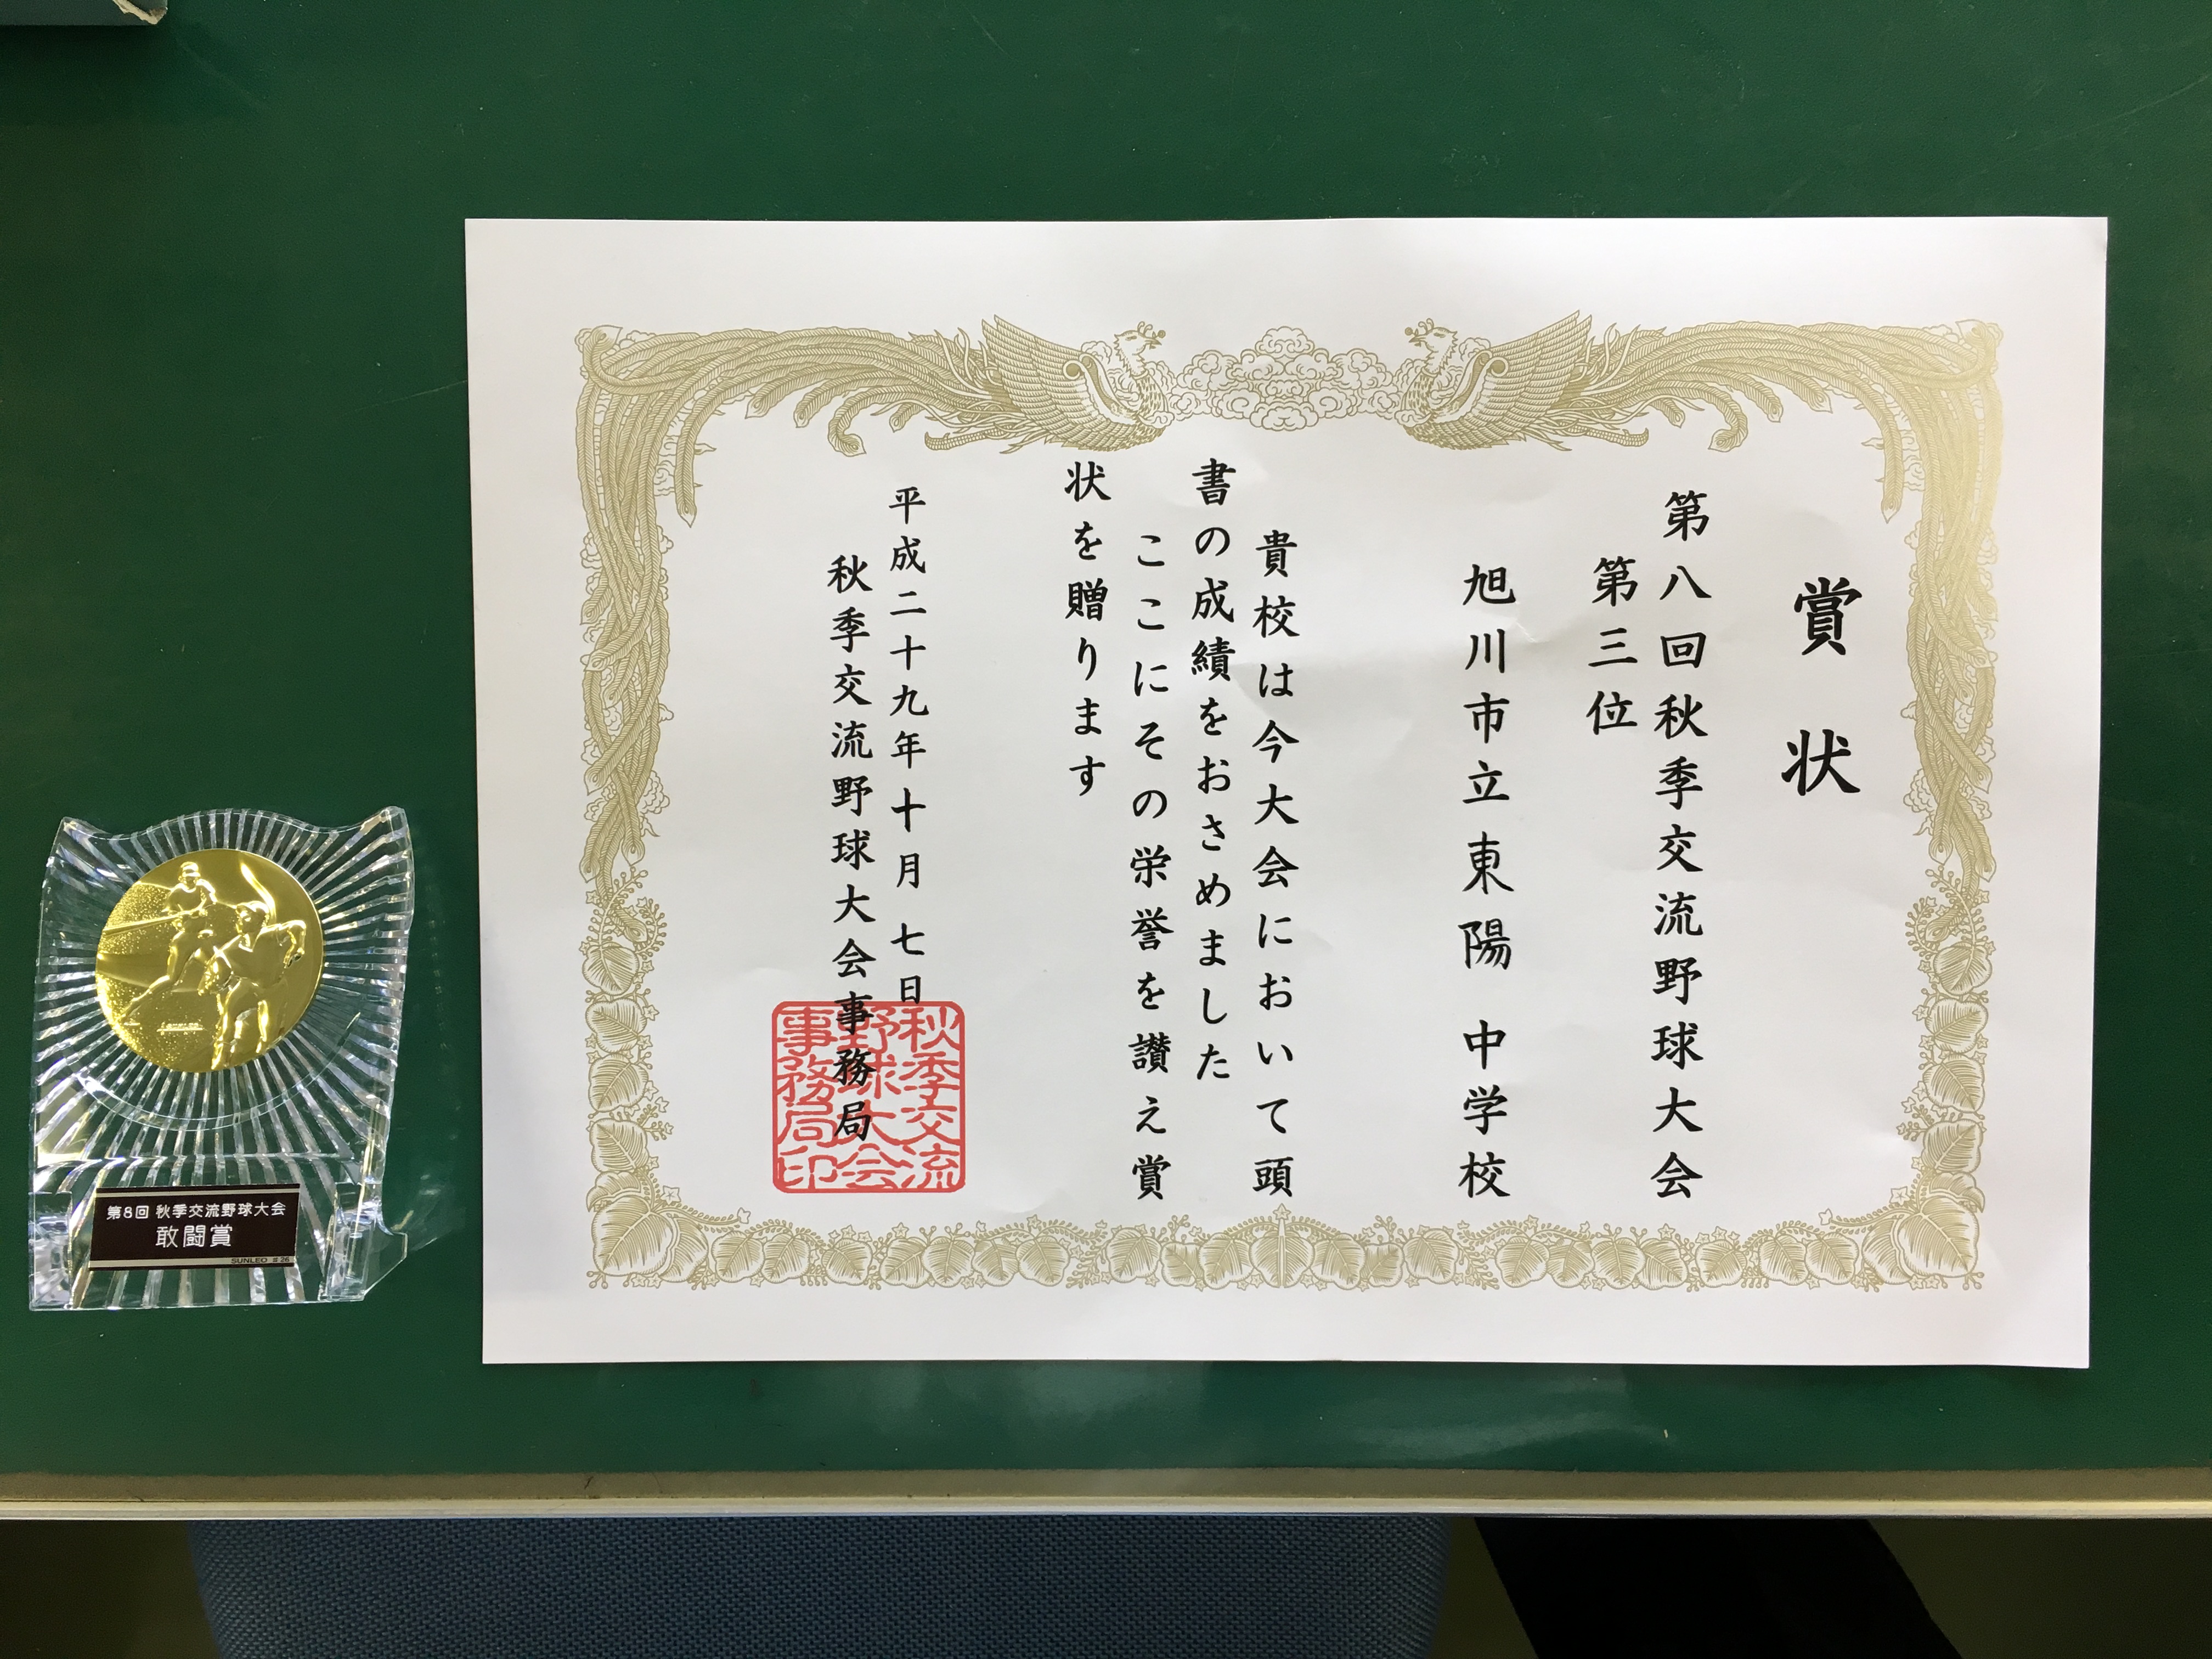 賞状
第八回秋季交流野球大会
第三位
旭川市立東陽中学校
貴校は今大会において頭
書の成績をおさめました
ここにその栄誉を讃え賞
状を贈ります
平成二十九年十月七日
秋季交流野球大会事務局
秋季交流
野球大会
事務局印
第8回 秋季交流野球大会
敢闘賞
SUNLEO #26